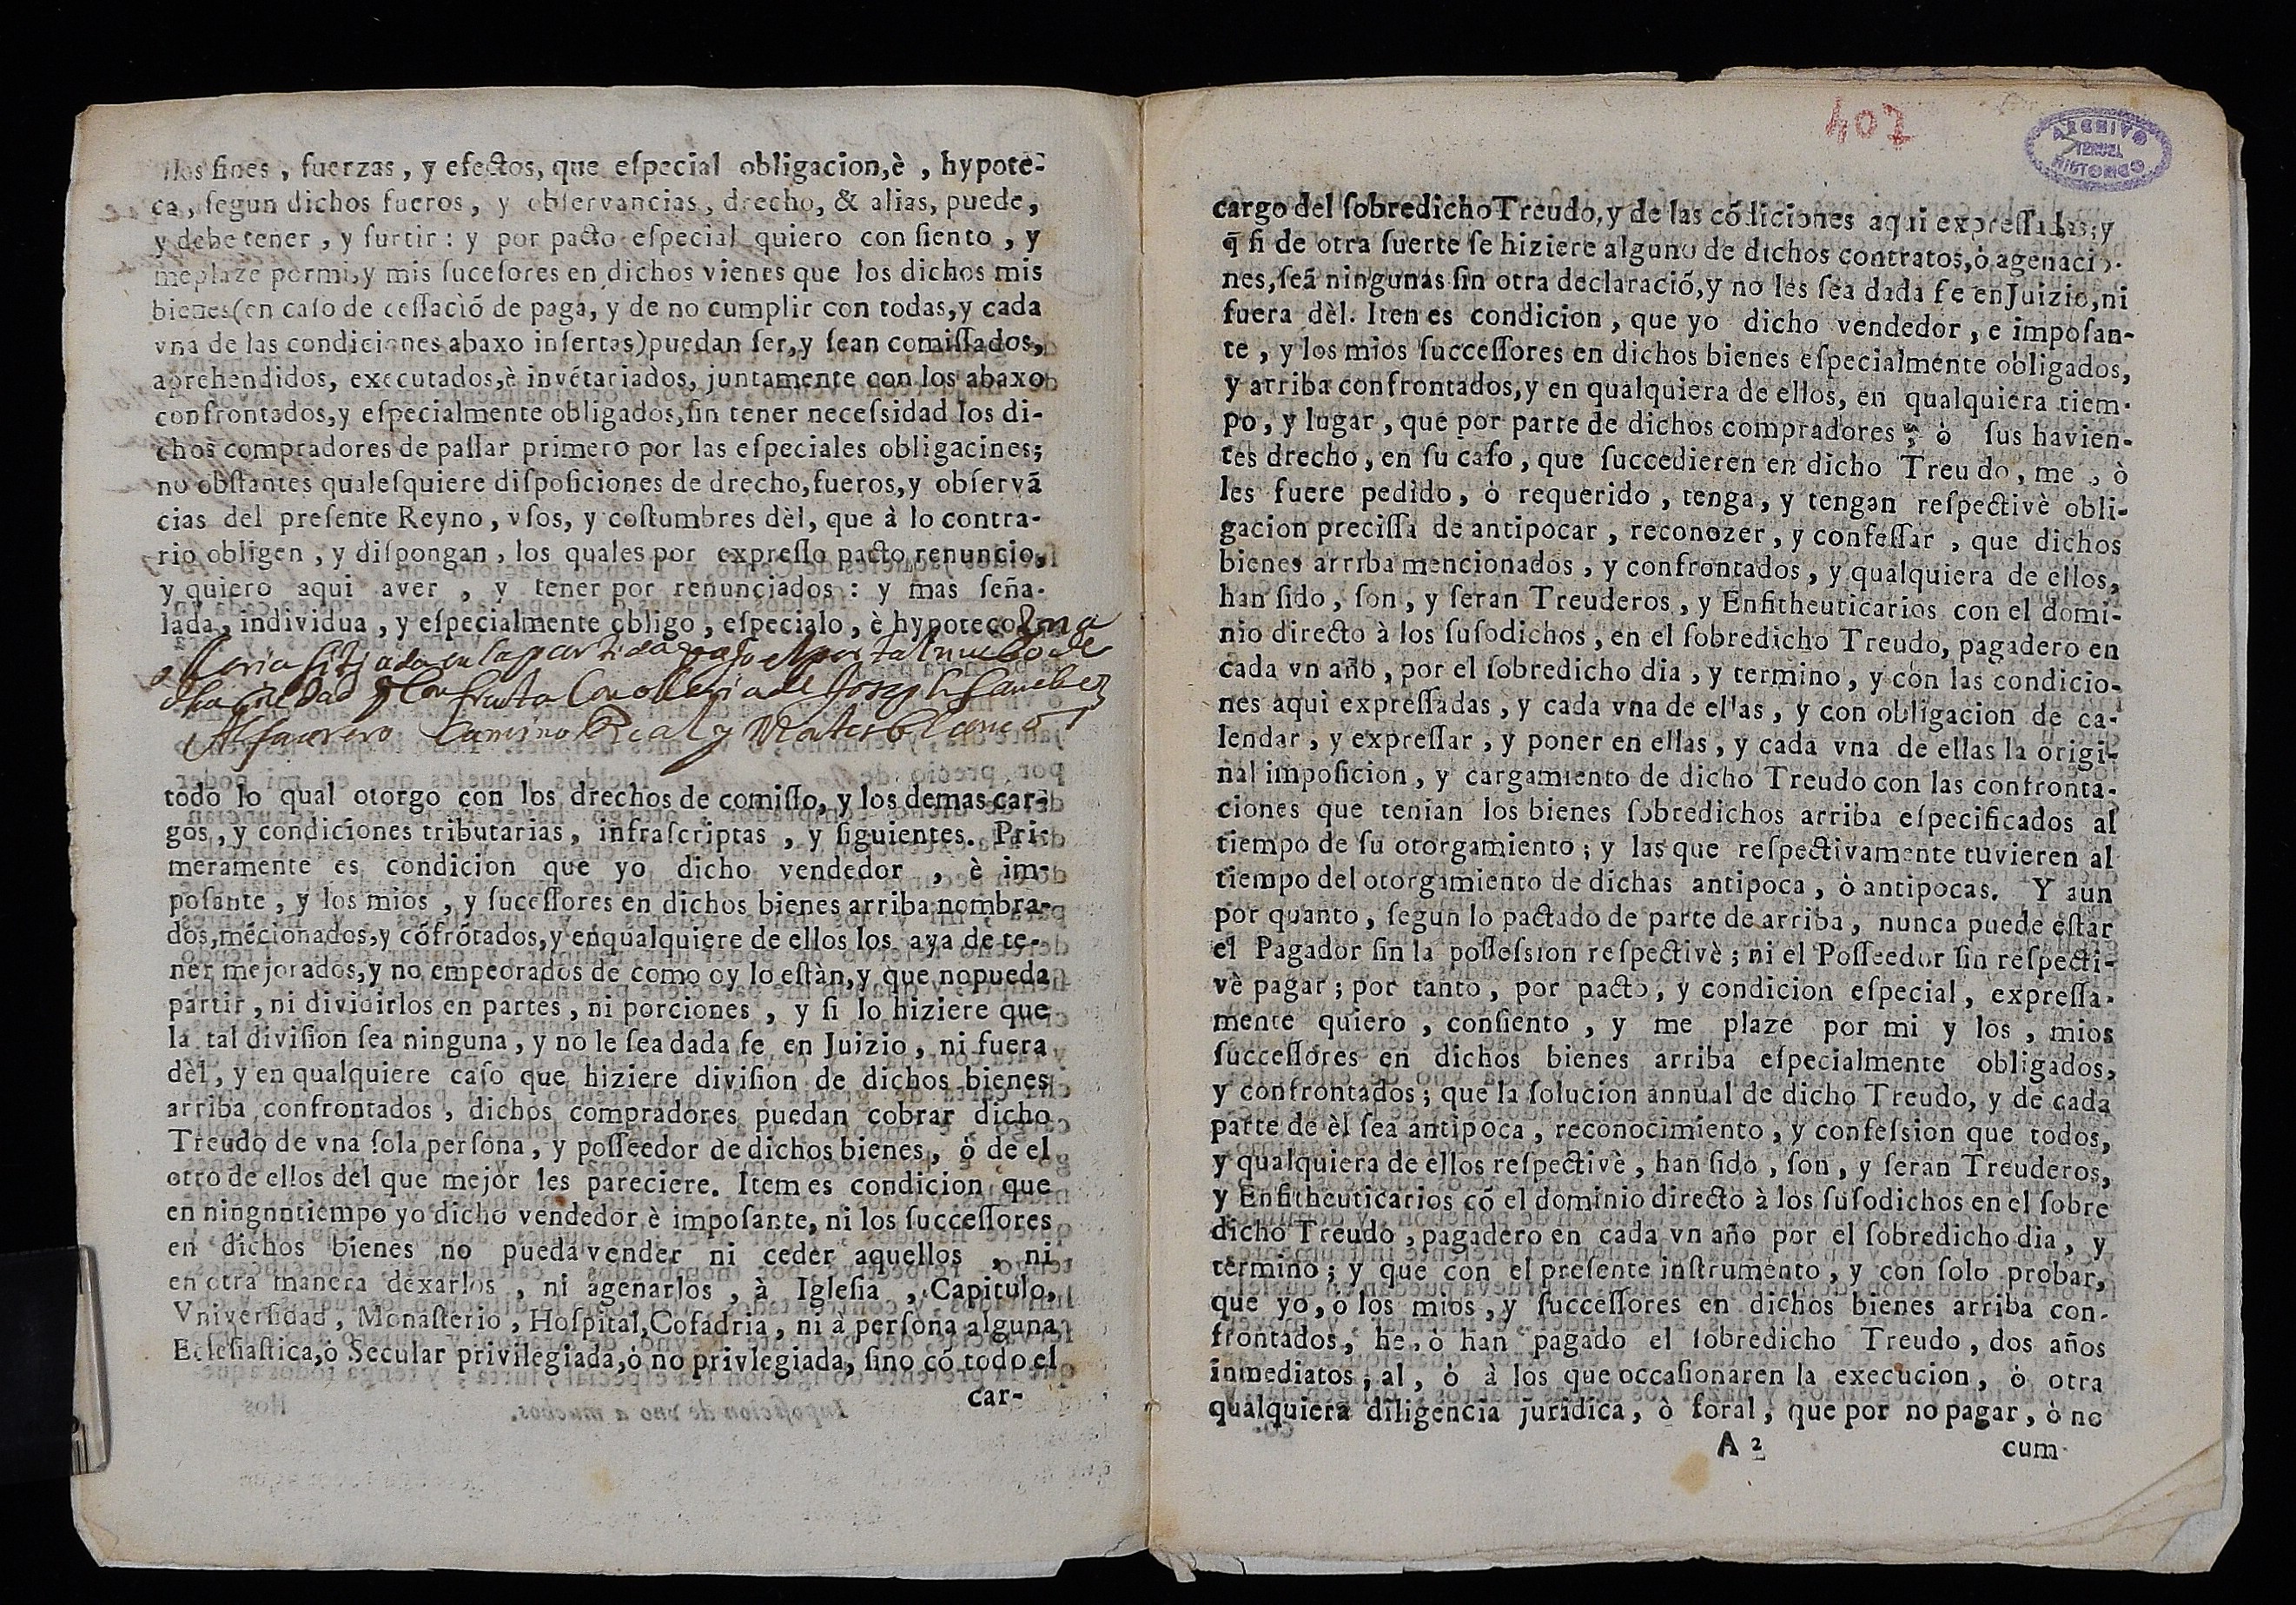 llos fines, fuerzas, y efectos, que eſpecial obligacion, è, hypote-
ca, ſegun dichos fueros, y obſervancias, drecho, & alias, puede,
y debe tener, y ſurtir: y por pacto eſpecial quiero conſiento, y
me plaze por mi, y mis ſuceſores en dichos vienes que los dichos mis
bienes (en caſo de ceſſaciō de paga, y de no cumplir con todas, y cada
vna de las condiciones abaxo inſertas) puedan ſer, y ſean comiſſados,
aprehendidos, executados, è invētariados, juntamente con los abaxo
confrontados, y eſpecialmente obligados, ſin tener neceſsidad los di-
chos compradores de paſſar primero por las eſpeciales obligacines;
no obſtantes qualeſquiere diſpoſiciones de drecho, fueros, y obſervā
cias del preſente Reyno, vſos, y coſtumbres dèl, que à lo contra-
rio obligen, y diſpongan, los quales por expreſſo pacto renuncio,
y quiero aqui aver, y tener por renunciados: y mas ſeña-
lada, individua, y eſpecialmente obligo, eſpecialo, è hypoteco Una
olleria sitiada en la partida vajo el portal nuebo de
dha Ciudad y Confrenta Con olleria de Joseph Sanchez
Alfaurero Camino Real y
todo lo qual otorgo con los drechos de comiſſo, y los demas car-
gos, y condiciones tributarias, infraſcriptas, y ſiguientes. Pri-
meramente es condicion que yo dicho vendedor, è im-
poſante, y los mios, y ſuceſſores en dichos bienes arriba nombra-
dos, mēcionados, y cōfrōtados, y enqualquiere de ellos los aya de te-
ner mejorados, y no empeorados de como oy lo eſtàn, y que nopueda
partir, ni dividirlos en partes, ni porciones, y ſi lo hiziere que
la tal diviſion ſea ninguna, y no le ſea dada fe en Juizio, ni fuera
dèl, y en qualquiere caſo que hiziere diviſion de dichos bienes
arriba confrontados, dichos compradores puedan cobrar dicho
Treudo de vna ſola perſona, y poſſeedor de dichos bienes, ò de el
otro de ellos del que mejor les pareciere. Item es condicion que
en ningnntiempo yo dicho vendedor è impoſante, ni los ſucceſſores
en dichos bienes no pueda vender ni ceder aquellos, ni
en otra manera dexarlos, ni agenarlos, à Igleſia, Capitulo,
Vniverſidad, Monaſterio, Hoſpital, Cofadria, ni à perſona alguna
Ecleſiaſtica, ò Secular privilegiada, ò no privlegiada, ſino cō todo el
car-
407
ARCHIVO
HISTORICO
TERUEL
cargo del ſobredicho Treudo, y de las cōdiciones aqui expreſſadas; y
q̄ ſi de otra ſuerte ſe hiziere alguno de dichos contratos, ò agenacio-
nes, ſeā ningunas ſin otra declaraciō, y no les ſea dada fe en Juizio, ni
fuera dèl. Iten es condicion, que yo dicho vendedor, e impoſan-
te, y los mios ſucceſſores en dichos bienes eſpecialmente obligados,
y arriba confrontados, y en qualquiera de ellos, en qualquiera tiem-
po, y lugar, que por parte de dichos compradores, ò ſus havien-
tes drecho, en ſu caſo, que ſuccedieren en dicho Treudo, me, ò
les fuere pedido, ò requerido, tenga, y tengan reſpectivè obli-
gacion preciſſa de antipocar, reconozer, y confeſſar, que dichos
bienes arriba mencionados, y confrontados, y qualquiera de ellos,
han ſido, ſon, y ſeran Treuderos, y Enfitheuticarios con el domi-
nio directo à los ſuſodichos, en el ſobredicho Treudo, pagadero en
cada vn año, por el ſobredicho dia, y termino, y con las condicio-
nes aqui expreſſadas, y cada vna de ellas, y con obligacion de ca-
lendar, y expreſſar, y poner en ellas, y cada vna de ellas la origi-
nal impoſicion, y cargamiento de dicho Treudo con las confronta-
ciones que tenian los bienes ſobredichos arriba eſpecificados al
tiempo de ſu otorgamiento; y las que reſpectivamente tuvieren al
tiempo del otorgamiento de dichas antipoca, ò antipocas. Y aun
por quanto, ſegun lo pactado de parte de arriba, nunca puede eſtar
el Pagador ſin la poſſeſsion reſpectivè; ni el Poſſeedor ſin reſpecti-
vè pagar; por tanto, por pacto, y condicion eſpecial, expreſſa-
mente quiero, conſiento, y me plaze por mi y los, mios
ſucceſſores en dichos bienes arriba eſpecialmente obligados,
y confrontados; que la ſolucion annual de dicho Treudo, y de cada
parte de èl ſea antipoca, reconocimiento, y confeſsion que todos,
y qualquiera de ellos reſpectivè, han ſido, ſon, y ſeran Treuderos,
y Enfitheuticarios cō el dominio directo à los ſuſodichos en el ſobre
dicho Treudo, pagadero en cada vn año por el ſobredicho dia, y
termino; y que con el preſente inſtrumento, y con ſolo probar,
que yo, ò los mios, y ſucceſſores en dichos bienes arriba con-
frontados, he, ò han pagado el ſobredicho Treudo, dos años
inmediatos, al, ò à los que occaſionaren la execucion, ò otra
qualquiera diligencia juridica, ò foral, que por no pagar, ò no
A 2
cum-